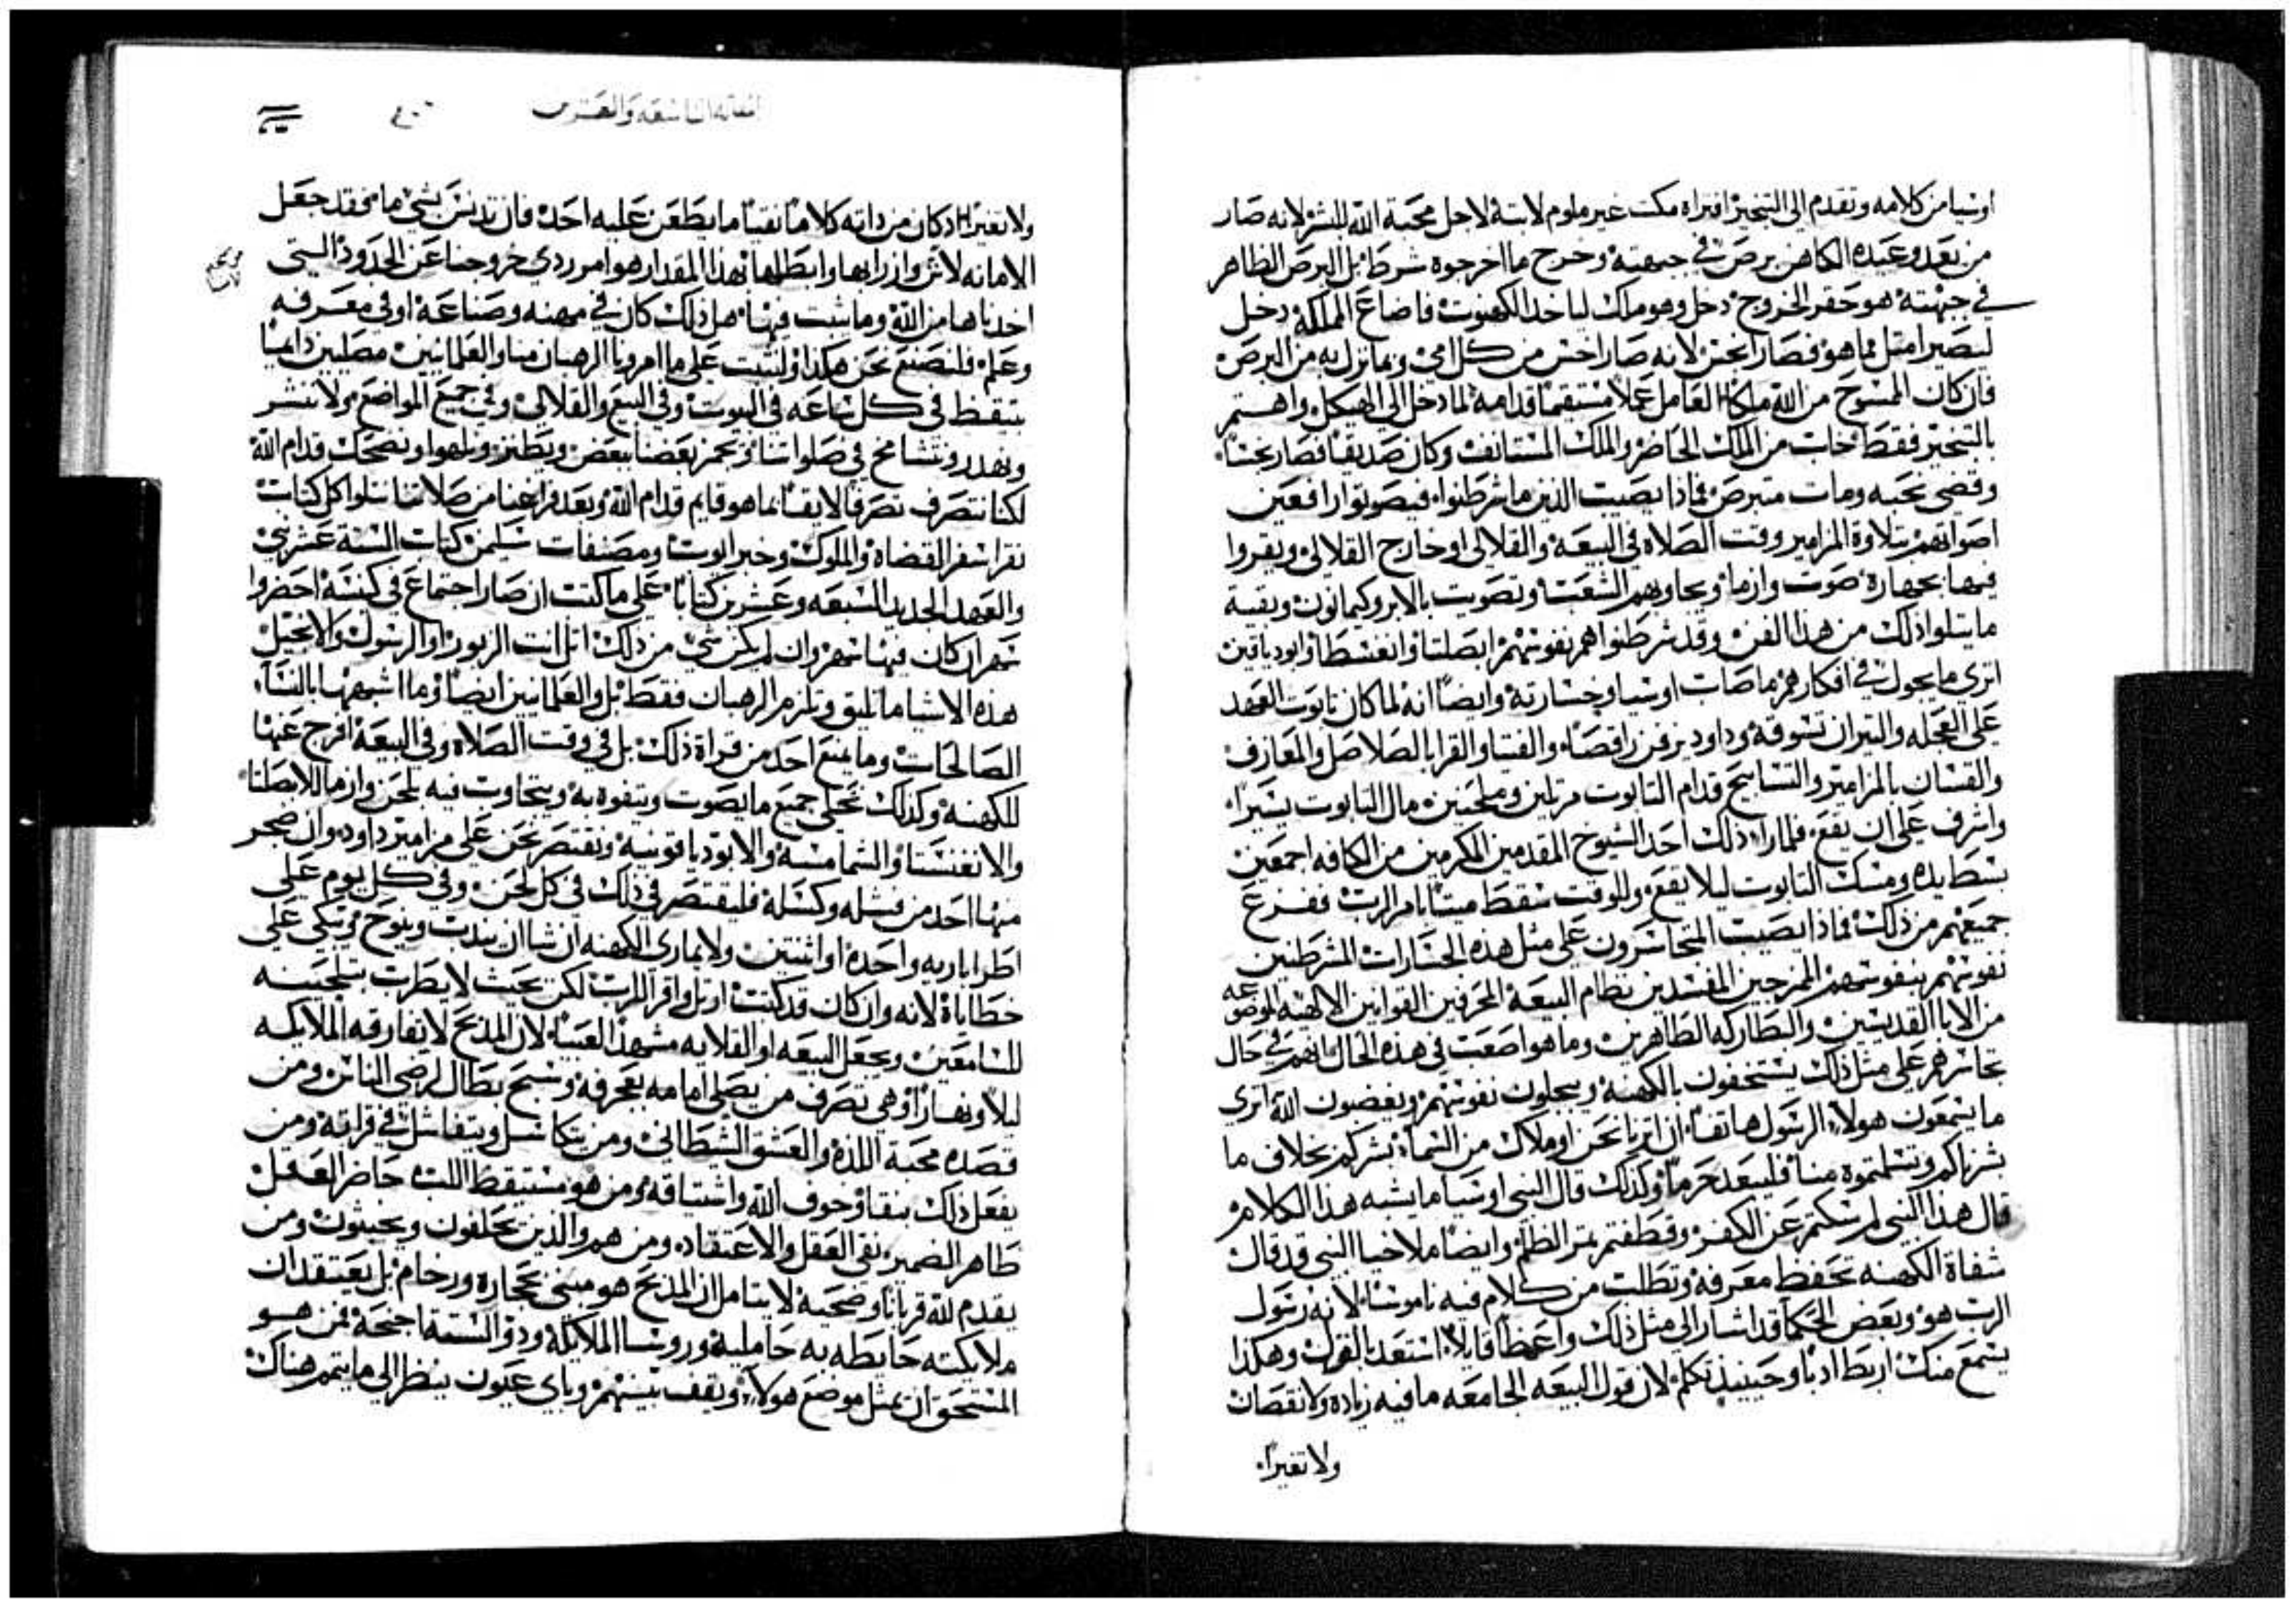 اوسيا من كلامه وتقدم الي التبخير افتراه مكت غير ملوم لابتة لاجل محبة الله للبشر لانه صار
من بعد وعيده الكاهن برص في جبهته وخرج ما اخرجوه شرط بل البرص الظاهر
في جبهته هو حقر الخروج دخل وهو ملك لياخد الكهنوت فاضاع المملكة دخل
ليصير امثل مما هو فصار انجس لانه صار اخس من كل امي وبما نزل به من البرص
فان كان المسوح من الله ملكا العامل عملا مستقيما قدامه لما دخل الي الهيكل واهتم
بالتبخير فقط خاب من الملك الحاضر والملك المستانف وكان صديقا فصار نجسا
وقضي نحبه ومات متبرص فماذا يصيب الذين ما شرطنوا فيصوتوا رافعين
اصواتهم بتلاوة المزامير وقت الصلاه في البيعة والقلالي او خارج القلالي ويقروا
فيها بجهارة صوت وازما ويجاوبهم الشعب وتصويت بالابروكيمانون وبقية
ما يتلوا ذلك من هذا الفن وقد شرطنوا هم نفوسهم ابصلتا وانغنسطا وابودياقن
اتري ما يجول في افكارهم ما صاب اوسيا وخسارته وايضا انه لما كان تابوت العهد
علي العجله والتيران تسوقه وداود يزفن راقصا والفتيا والقرا بالصلاصل والمعازف
والقسان بالمزامير والتسابيح قدام التابوت مرتلين وملحنين مال التابوت يسيرا
واشرف علي ان يقع فلما را ذلك احد الشيوخ المقدمين المكرمين من الكافه اجمعين
بسط يده ومسك التابوت ليلا يقع وللوقت سقط ميتا بامر الرب ففزع
جميعهم من ذلك فماذا يصيب المتجاسرون علي مثل هذه الجسارات المشرطنين
نفوسهم بنفوسهم المزجين المفسدين نظام البيعة المحرفين القوانين الالهيه الموضوعه
من الابا القديسين والبطاركه الطاهرين وما هو اصعب في هذه الحال انهم في حال
تجاسرهم علي مثل ذلك يستخفون بالكهنة ويبجلون نفوسهم ويغضبون الله اتري
ما يسمعون هولاء الرسول هاتفا ان اتينا نحن او ملاك من السماء بشركم بخلاف ما
بشرناكم وتسلمتموه منا فليبعد حرما وكذلك قال النبي اوسيا ما يشبه هذا الكلام
قال هذا النبي لم سكتم عن الكفر وقطفتم ثمر الظلم وايضا ملاخيا النبي قد قال
شفاة الكهنه تحفظ معرفة وتطلب من كلام فيه ناموسا لانه رسول
الرب هو وبعض الحكما قد اشار الي مثل ذلك واعظا قايلا استعد بالقول وهكذا
يسمع منك اربط ادبا وحينيذ تكلم لان قول البيعه الجامعه ما فيه زياده ولا نقصان
ولا تغيرا
المقاله التاسعه والعشرين
ولا تغيرا اد كان من داته كلاما نقيا ما يطعن عليه احد فان تدنس بشي ما فقد جعل
الامانه لاش وازرا بها وابطلها بهذا المقدار هو امر ردي خروجنا عن الحدود التي
اخدناها من الله وما ثبت فيها هل ذلك كان في مهنه وصناعة او في معرفه
وعلم فلنصنع نحن هكذا ولنثبت علي ما امرونا الرهبان منا والعلمانيين مصليين دايما
بتيقظ في كل ساعه في البيوت وفي البيع والقلالي وفي جميع المواضع ولا ننشر
ونهدر ونتشامخ في صلواتنا ونغمز بعضنا بعض ونطنز ونلهوا ونضحك قدام الله
لكنا نتصرف تصرفا لايقا بما هو قايم قدام الله وبعد فراغنا من صلاتنا نتلوا كل كتاب
نقرا سفر القضاه والملوك وخبر ايوب ومصنفات سليمن كتاب الستة عشر نبي
والعهد الجديد السبعه وعشرين كتابا علي ما كنت ان صار اجتماع في كنيسة احضروا
شهر ان كان فيها شهر وان لم يكن شي من ذلك اتل انت الزبور او الرسول والانجيل
هذه الاشيا ما تليق وتلزم الرهبان فقط بل والعلمانيين ايضا وما اشبهها بالنساء
الصالحات وما يمنع احد من قراة ذلك بل في وقت الصلاه وفي البيعة افرج عنها
للكهنه وكذلك تخلي جميع ما يصوت ويتفوه به ويتجاوب فيه بلحن وازما للابصلتا
والانغنسنتا والشمامسة والابودياقونية ونقتصر نحن علي مزامير داود وان ضجر
منها احد من فشله وكسله فليقتصر في ذلك في كل لحن وفي كل يوم علي
اطراباريه واحدة او اثنتين ولا يماري الكهنه ان شا ان يندب وينوح ويبكي علي
خطاياه لانه وان كان قد كتب اوتل واقرا للرب لكن بحيث لا يطرب بتلحينه
للسامعين ويجعل البيعه او القلايه مشهد العبيا لان المذبح لا تفارقه الملايكه
ليلا ونهارا وهي تصرف من يصلي امامه بعجرفة ونسبح بطال لرضي الناس ومن
قصده محبة اللدة والعشق الشيطاني ومن يتكاسل ويتفاشل في قراته ومن
يفعل ذلك بنقا وخوف الله واشتياقه ومن هو مستيقظ اللب حاضر العقل
طاهر الضمير نقي العقل والاعتقاد ومن هم والذين يحلفون ويخبثون ومن
يقدم لله قربانا وضحية لا يتامل ان المذبح هو مبني بحجارة ورخام بل يعتقد ان
ملايكته حايطه به حامليه وروسا الملايكه ودو الستة اجنحة فمن هو
المستحق ان يمثل موضع هولاء ويقف بينهم وباي عيون ينظر الي ما يتم هناك